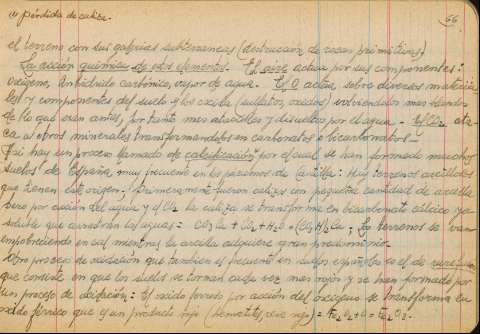 (1) Pérdida de caliza.
66
el terreno con sus galerias subterraneas (destrucción de rocas primitivas)
La acción quimica de estos elementos. El aire actua por sus componentes:
oxigeno, anhidrido carbónico, vapor de agua. El O actua sobre diversos materia
les y componentes del suelo y los oxida (sulfatos, oxidos) volviendolos mas blandos
de lo que eran antes, por tanto mas atacables y disueltos por el agua. El CO2 ata-
ca a otros minerales transformandolos en carbonatos o bicarbonatos.
Asi hay un proceso llamado de calcificación (1) por el cual se han formado muchos
suelos de España, muy frecuente en los paramos de Castilla: Hay terrenos arcillosos
que tienen este origen. Primeramente fueron calizos con pequeña cantidad de arcilla
pero por acción del agua y el CO2 la caliza se transforma en bicarbonato cálcico ya
soluble que arrastran las aguas = CO3Ca + CO2 + H2O = (CO3H)2Ca. Los terrenos se van
empobreciendo en cal mientras la arcilla adquiere gran predominio.
Otro proceso de oxidación que tambien es frecuente en suelos españoles es el de
que consiste en que los suelos se tornan cada vez mas rojos y se han formado por
un proceso de oxidación: El oxido ferroso por acción del oxigeno se transforma en
oxido ferrico que es un producto rojo (hematites, ocre rojo) = Fe2O2 + O = Fe2O3.